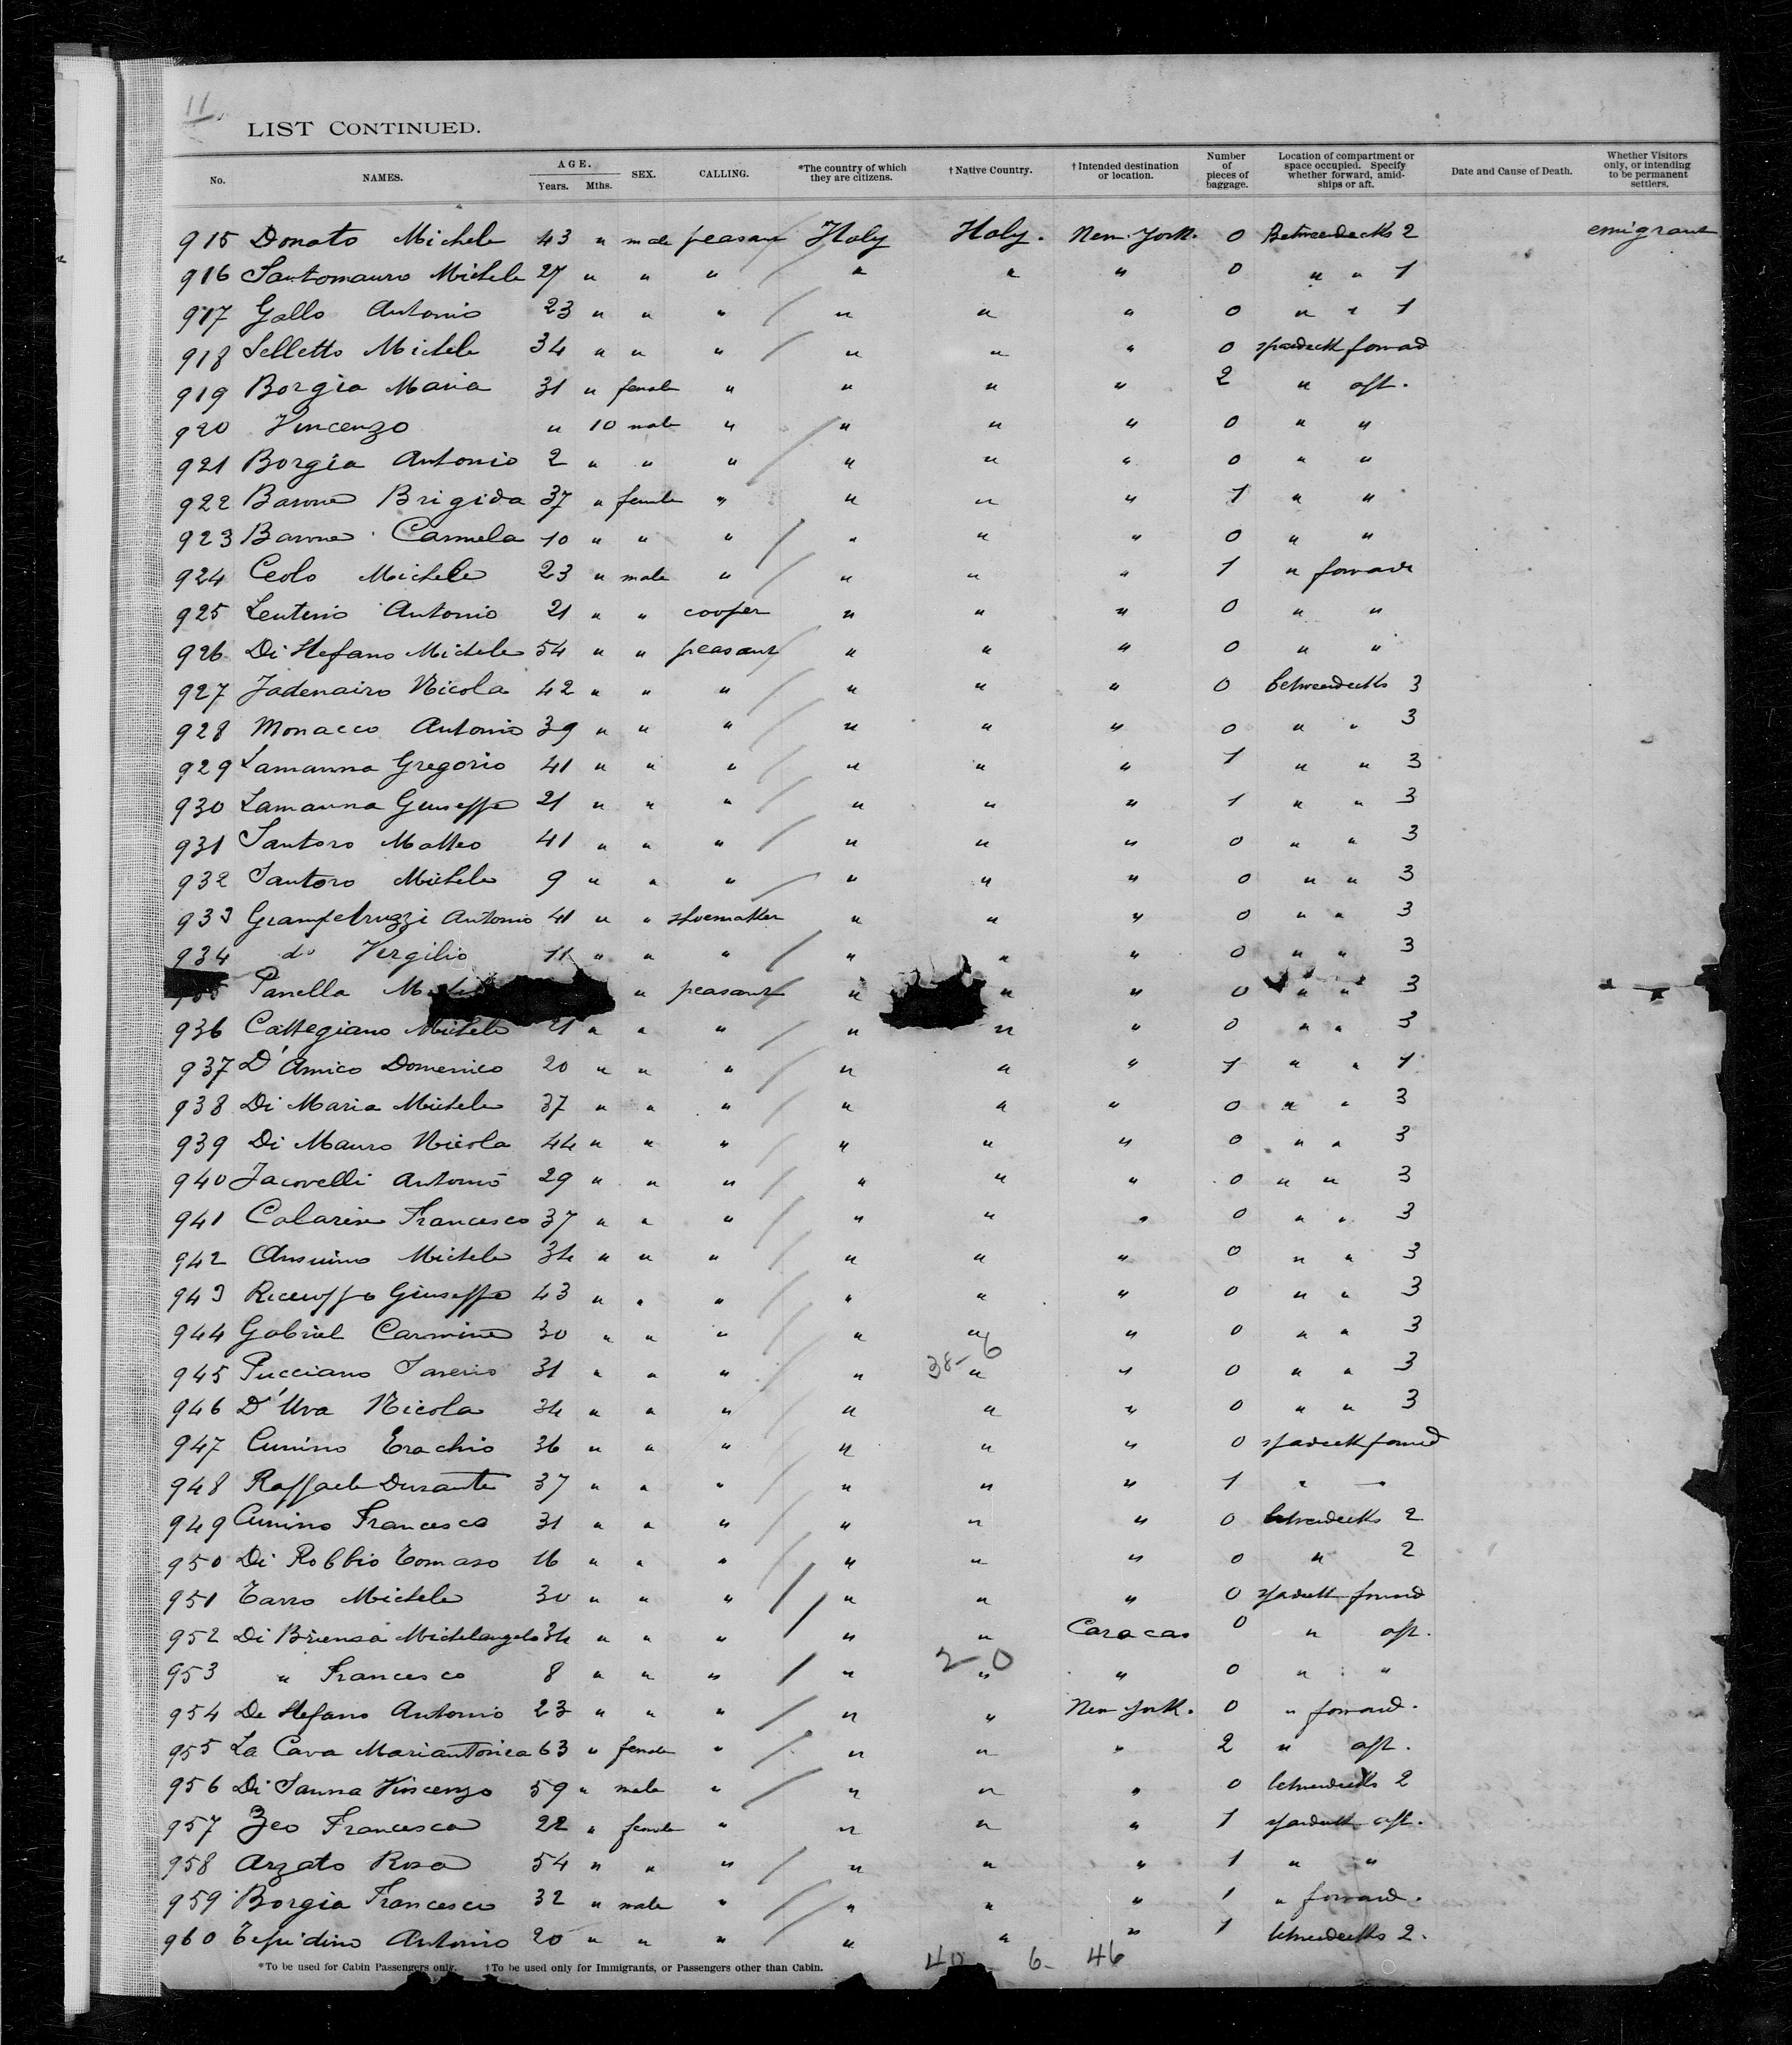 11.
LIST CONTINUED.
No. NAMES. AGE. Years. Mths. SEX. CALLING. *The country of which they are citizens. †Native Country. †Intended destination or location. Number of pieces of baggage. Location of compartment or space occupied. Specify whether forward, amidships or aft. Date and Cause of Death. Whether Visitors only, or intending to be permanent settlers.
915 Donato Michele 43 " male peasant Italy Italy. New York. 0 Betweendecks 2 emigrant
916 Santomauro Michele 27 " " " " " " 0 " " 1
917 Gallo Antonio 23 " " " " " " 0 " " 1
918 Selletto Michele 34 " " " " " " 0 spardeck forward
919 Borgia Maria 31 " female " " " " 2 " aft.
920 Vincenzo " 10 male " " " " 0 " "
921 Borgia Antonio 2 " " " " " " 0 " "
922 Barone Brigida 37 " female " " " " 1 " "
923 Barone Carmela 10 " " " " " " 0 " "
924 Ceolo Michele 23 " male " " " " 1 " forward
925 Antonio 21 " " cooper " " " 0 " "
926 Di Stefano Michele 54 " " peasant " " " 0 " "
927 Jadenairo Nicola 42 " " " " " " 0 betweendecks 3
928 Monacco Antonio 39 " " " " " " 0 " " 3
929 Lamanna Gregorio 41 " " " " " " 1 " " 3
930 Lamanna Giuseppe 21 " " " " " " 1 " " 3
931 Santoro Matteo 41 " " " " " " 0 " " 3
932 Santoro Michele 9 " " " " " " 0 " " 3
933 Giampetruzzi Antonio 41 " " shoemaker " " " 0 " " 3
934 do Vergilio 11 " " " " " " 0 " " 3
Panella " peasant " " " 0 " " 3
936 Cattegiano Michele 21 " " " " " " 0 " " 3
937 D'Amico Domenico 20 " " " " " " 1 " " 1
938 Di Maria Michele 37 " " " " " " 0 " " 3
939 Di Mauro Nicola 44 " " " " " " 0 " " 3
940 Jacovelli Antonio 29 " " " " " " 0 " " 3
941 Francesco 37 " " " " " " 0 " " 3
942 Ansuino Michele 34 " " " " " " 0 " " 3
943 Giuseppe 43 " " " " " " 0 " " 3
944 Gabriel Carmine 30 " " " " " " 0 " " 3
38-6
945 Pucciano Saverio 31 " " " " " " 0 " " 3
946 D'Uva Nicola 34 " " " " " " 0 " " 3
947 Cunino Erachio 36 " " " " " " 0 spardeck forward
948 Raffaele Durante 37 " " " " " " 1 " "
949 Cunino Francesco 31 " " " " " " 0 betweendecks 2
950 Di Robbio Tomaso 16 " " " " " " 0 " 2
951 Tarro Michele 30 " " " " " " 0 spardeck forward
952 Di Brienza Michelangelo 34 " " " " " Caracas 0 " aft.
2-0
953 " Francesco 8 " " " " " " 0 " "
954 De Stefano Antonio 23 " " " " " New York. 0 " forward.
955 La Cava Mariantonia 63 " female " " " " 2 " aft.
956 Di Sanna Vincenzo 59 " male " " " " 0 betweendecks 2
957 Zeo Francesca 22 " female " " " " 1 spardeck aft.
958 Arzato Rosa 54 " " " " " " 1 " "
959 Borgia Francesco 32 " male " " " " 1 " forward.
960 Antonio 20 " " " " " " 1 betweendecks 2.
40 6- 46
*To be used for Cabin Passengers only. †To be used only for Immigrants, or Passengers other than Cabin.